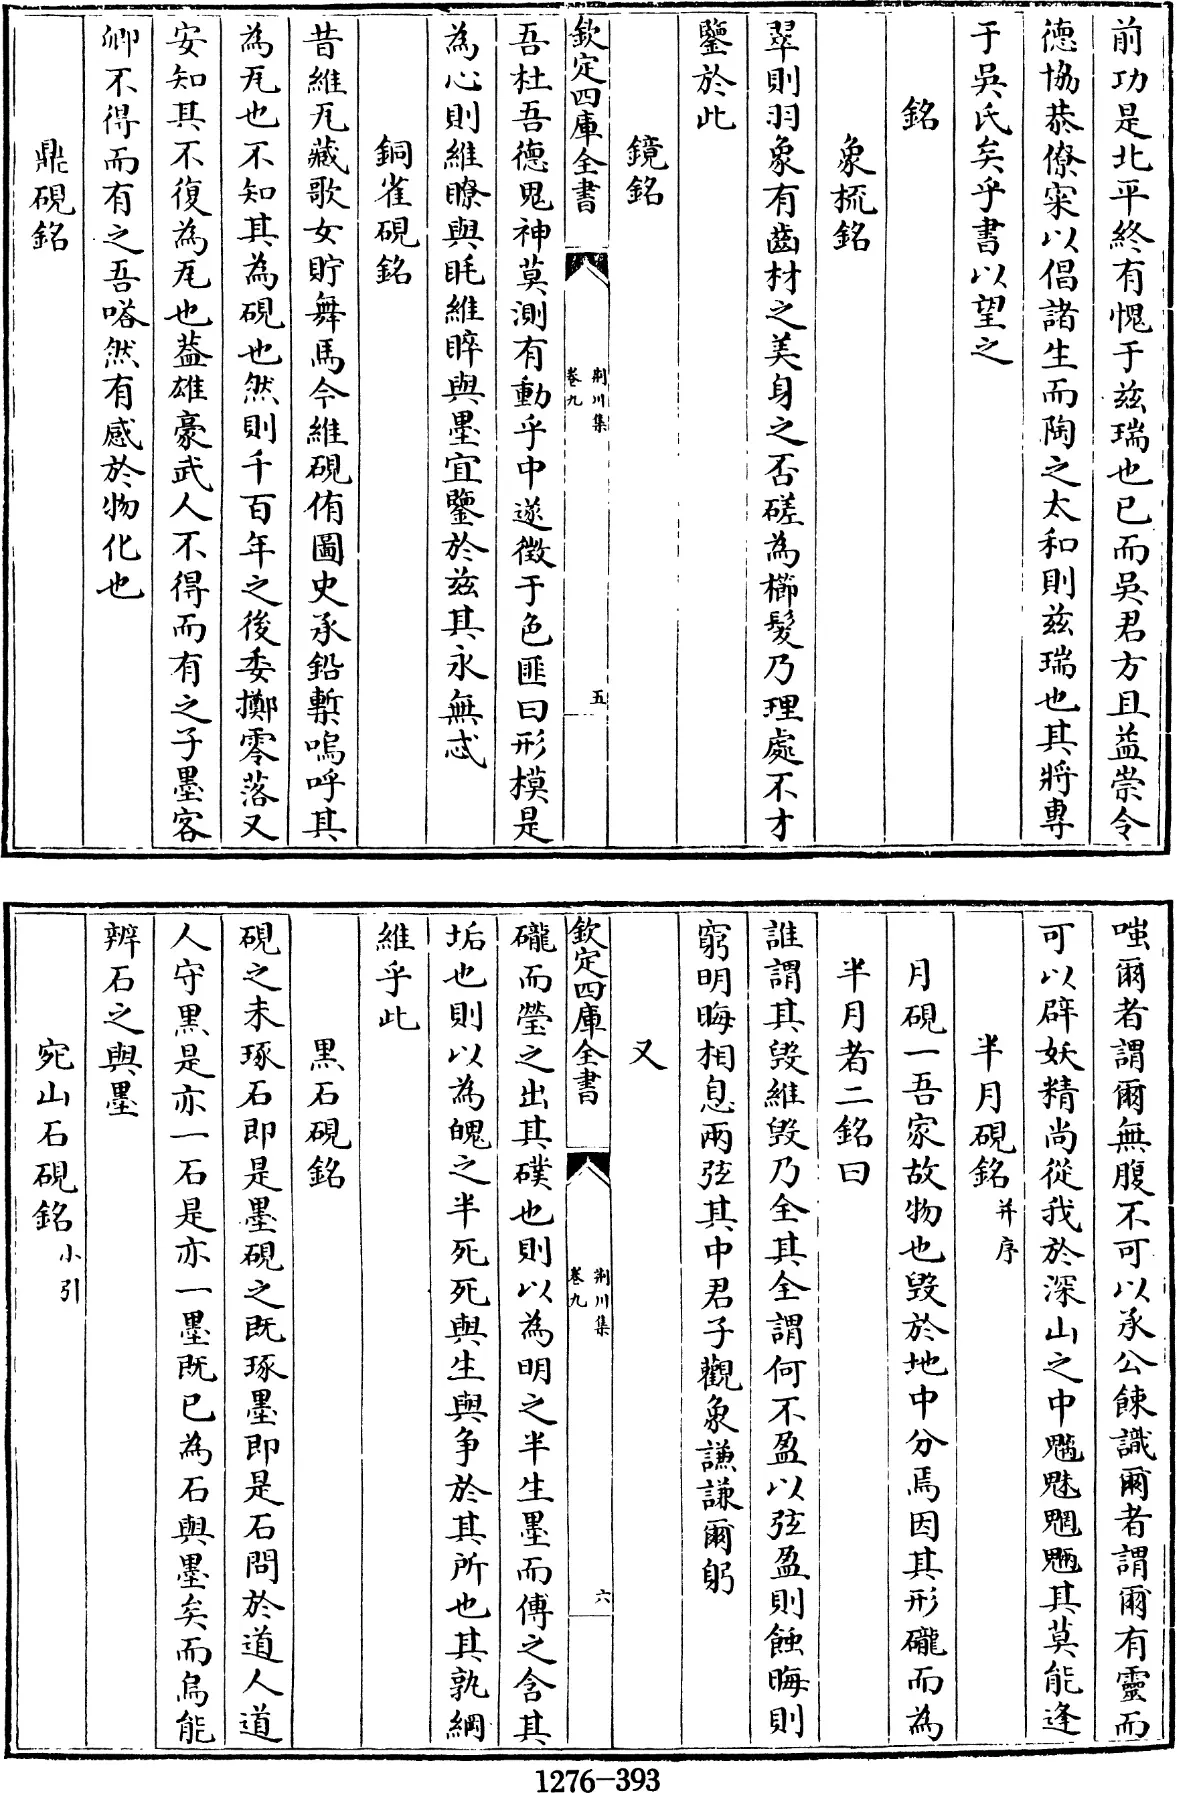 前功是北平終有愧于兹瑞也已而吳君方且益崇令
德恊恭僚寀以倡諸生而陶之太和則兹瑞也其將專
于吳氏矣乎書以望之
銘
象梳銘
翠則羽象有齒材之美身之否磋為櫛髮乃理處不才
鑒於此
鏡銘
欽定四庫全書
荆川集
卷九
五
吾杜吾德鬼神莫測有動乎中遂徴于色匪曰形模是
為心則維瞭與眊維睟與墨宜鑒於兹其永無忒
銅雀硯銘
昔維瓦藏歌女貯舞馬今維硯侑圖史承鉛槧嗚呼其
為瓦也不知其為硯也然則千百年之後委擲零落又
安知其不復為瓦也葢雄豪武人不得而有之子墨客
卿不得而有之吾嗒然有感於物化也
鼎硯銘
嗤爾者謂爾無腹不可以承公餗識爾者謂爾有靈而
可以辟妖精尚從我於深山之中魑魅魍魎其莫能逢
半月硯銘并序
月硯一吾家故物也毁於地中分焉因其形礲而為
半月者二銘曰
誰謂其毁維毁乃全其全謂何不盈以弦盈則蝕晦則
窮明晦相息兩弦其中君子觀象謙謙爾躬
又
欽定四庫全書
荆川集
卷九
六
礲而瑩之出其礫也則以為明之半生墨而傅之含其
垢也則以為魄之半死死與生與爭於其所也其孰綱
維乎此
黑石硯銘
硯之未琢石即是墨硯之既琢墨即是石問於道人道
人守黑是亦一石是亦一墨既已為石與墨矣而烏能
辨石之與墨
宛山石硯銘小引
1276-393